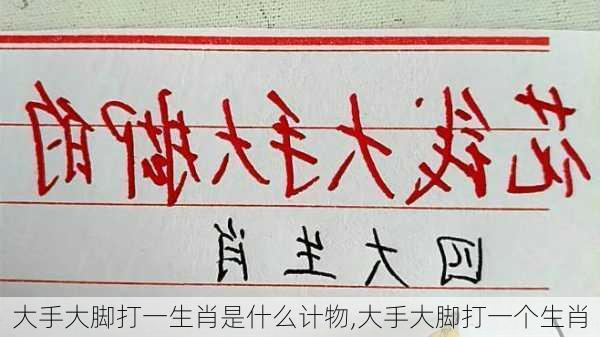 花钱大手大脚的
四大生肖
大手大脚打一生肖是什么计物,大手大脚打一个生肖